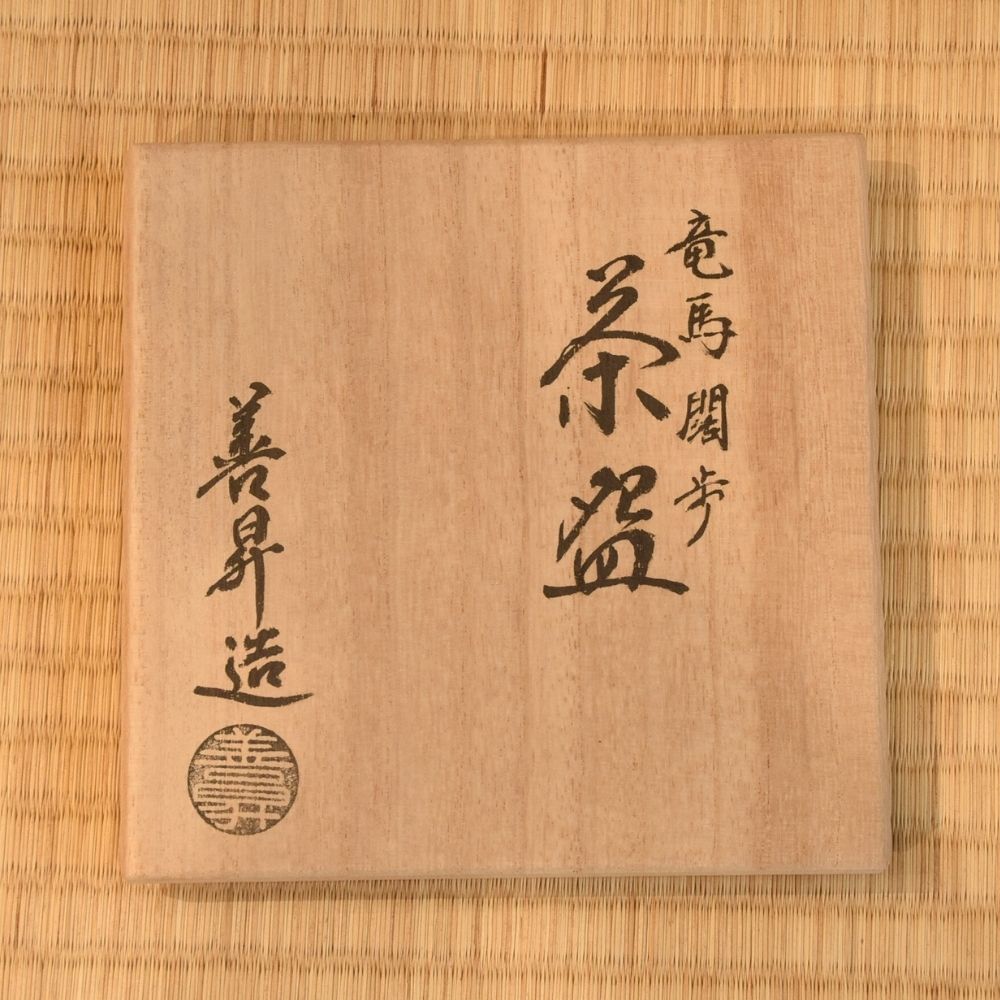 竜馬闊歩
茶盌
善昇造
善昇